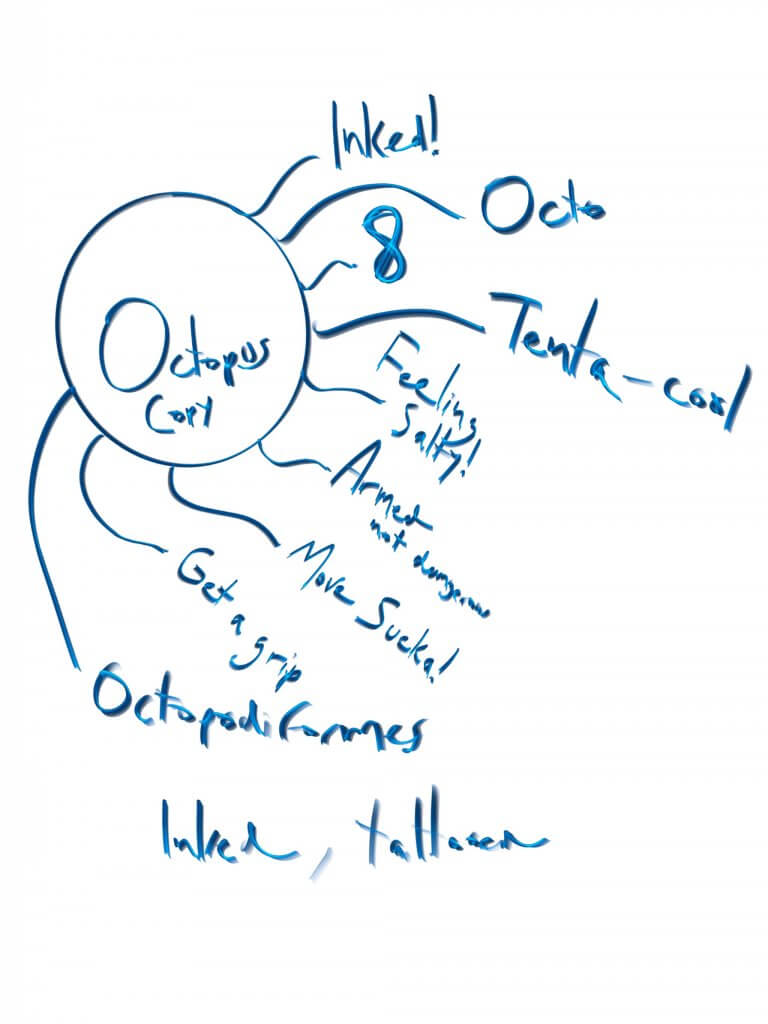 Inked!
Octo
8
Tenta-cool
Octopus
Copy
Feeling
Salty!
Armed
not dangerous
Move Sucka!
Get
a
grip
Octopodiformes
Inked, tattooed